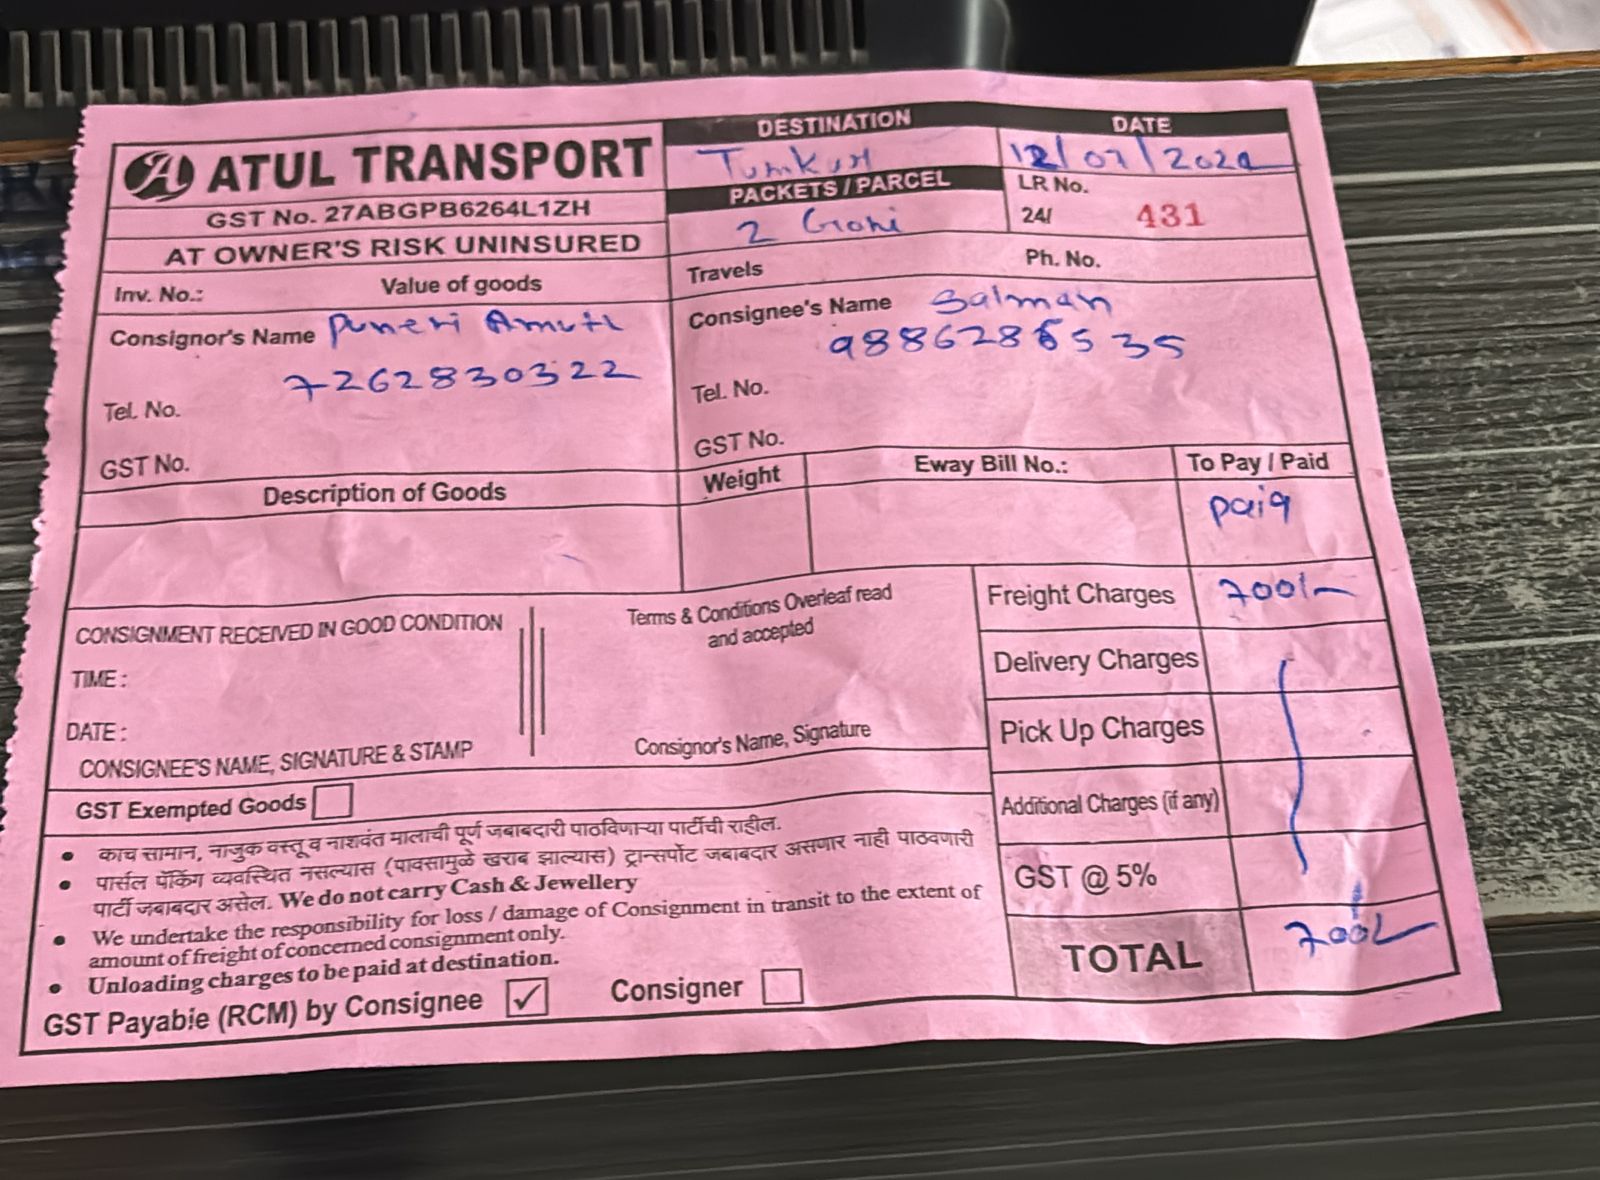 ATUL TRANSPORT
GST No. 27ABGPB6264L1ZH
AT OWNER'S RISK UNINSURED
DESTINATION
Tumkur
DATE
PACKETS / PARCEL
2 Goni
LR No.
24/ 431
Inv. No.: Value of goods
Travels Ph. No.
Consignor's Name Puneri
7262830322
Tel. No.
GST No.
Consignee's Name Salman
9886286535
Tel. No.
GST No.
Description of Goods
Weight
Eway Bill No.:
To Pay / Paid
paid
CONSIGNMENT RECEIVED IN GOOD CONDITION
TIME :
DATE :
CONSIGNEE'S NAME, SIGNATURE & STAMP
Terms & Conditions Overleaf read
and accepted
Consignor's Name, Signature
Freight Charges 700/-
Delivery Charges
Pick Up Charges
Additional Charges (if any)
GST @ 5%
TOTAL 700/-
GST Exempted Goods
• काच सामान, नाजुक वस्तू व नाशवंत मालाची पूर्ण जबाबदारी पाठविणाऱ्या पार्टीची राहील.
• पार्सल पॅकिंग व्यवस्थित नसल्यास (पावसामुळे खराब झाल्यास) ट्रान्सपोर्ट जबाबदार असणार नाही पाठवणारी
पार्टी जबाबदार असेल. We do not carry Cash & Jewellery
• We undertake the responsibility for loss / damage of Consignment in transit to the extent of
amount of freight of concerned consignment only.
• Unloading charges to be paid at destination.
GST Payable (RCM) by Consignee ✓ Consigner